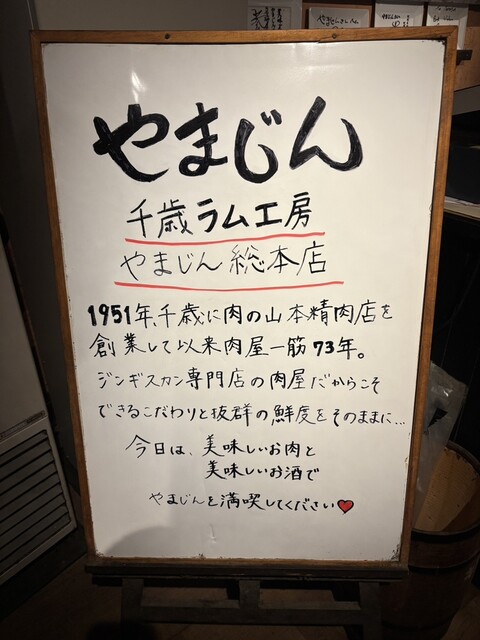 やまじん
千歳ラム工房
やまじん総本店
1951年、千歳に肉の山本精肉店を
創業して以来肉屋一筋73年。
ジンギスカン専門店の肉屋だからこそ
できるこだわりと抜群の鮮度をそのままに…
今日は、美味しいお肉と
美味しいお酒で
やまじんを満喫してください♥